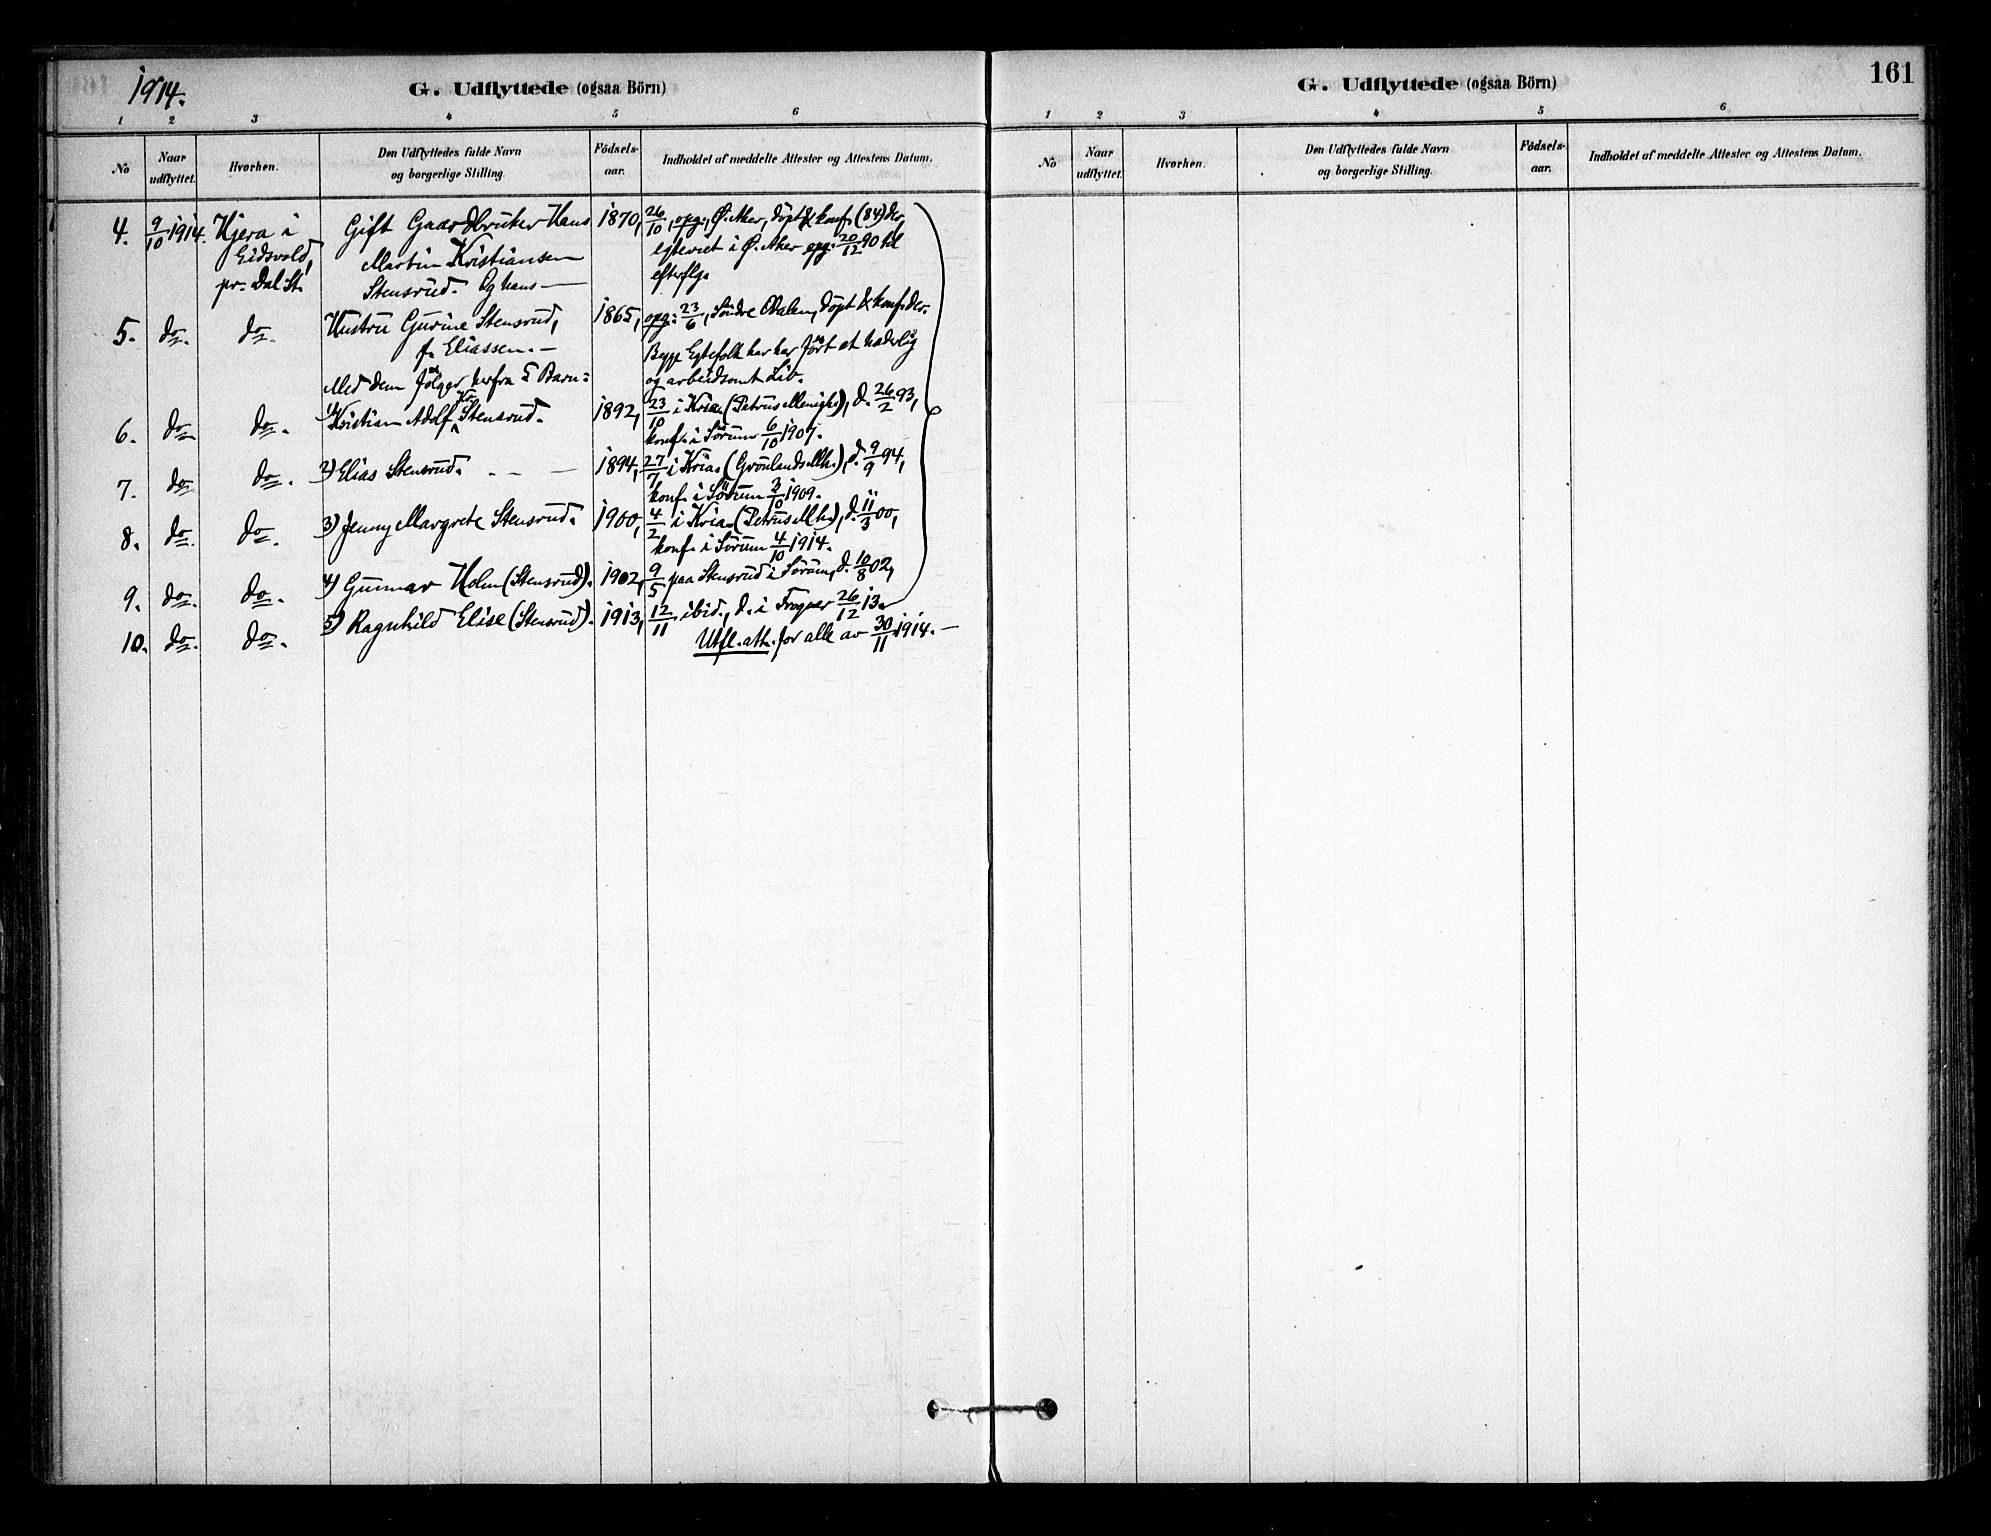 1914.
G. Udflyttede (ogsaa Börn)
1 2 3 4 5 6
No
Naar udflyttet.
Hvorhen.
Den Udflyttedes fulde Navn og borgerlige Stilling.
Födsels-aar.
Indholdet af meddelte Attester og Attestens Datum.
4. 9/10 1914. Kjera i Gift Gaardbruker Hans 1870, 26/10, opg., Ø. Aker, döpt & konf. (84) der,
Eidsvold, Martin Kristiansen egteviet i Ø. Aker opg. 20/12 90 til
pr. Dal St. Stensrud. Og hans — efterflg.
5. do. do. Hustru Gurine Stensrud, 1865, opg: 23/6, Söndre Odalen, döpt & konf. der.
f. Eliassen. — Begge Egtefolk har her fört et hæderlig
Med dem fölger herfra 5 Barn: og arbeidsomt Liv.
6. do do. 1) Kristian Adolf Kr. Stensrud. 1892, 23/10 i Kria (Petrus Menigh.), d. 26/2 93,
konf. i Sörum 6/10 1907.
7. do do. 2) Elias Stensrud. - - — 1894, 27/7 i Kria (Grönlands Mh.), d. 9/9 94,
konf. i Sörum 3/10 1909.
8. do. do. 3) Jenny Margrete Stensrud. 1900, 4/2 i Kria (Petrus Mh.), d. 11/3 00,
konf. i Sörum 4/10 1914.
9. do. do. 4) Gunnar Holm (Stensrud). 1902, 9/5 paa Stensrud i Sörum, d. 10/8 02,
10. do. do. 5) Ragnhild Elise (Stensrud). 1913, 12/11 ibid., d. i Frogner 26/12 13.
Utfl. att. for alle av 30/11 1914. —
G. Udflyttede (ogsaa Börn)
161
1 2 3 4 5 6
No
Naar udflyttet.
Hvorhen.
Den Udflyttedes fulde Navn og borgerlige Stilling.
Födsels-aar.
Indholdet af meddelte Attester og Attestens Datum.